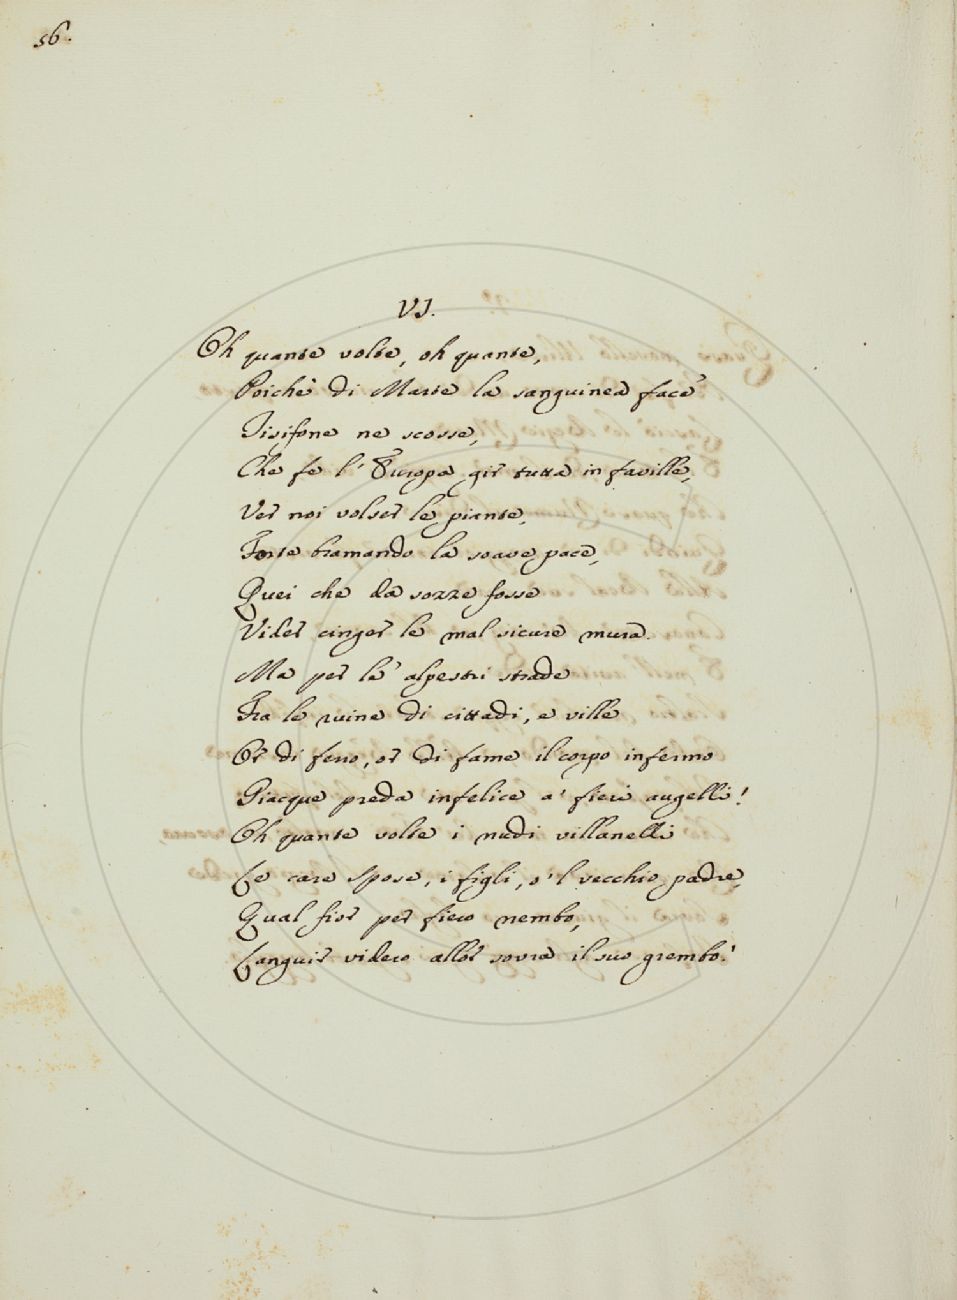 56.
VI.
Oh quante volte, oh quante,
Poichè di Marte la sanguinea face
Tisifone ne scosse,
Che fe l'Europa gir tutta in faville,
Ver noi volser le piante,
Forte bramando la soave pace,
Quei che da sozze fosse
Vider cinger le mal sicure mura.
Ma per la' alpestri strade
Fra le ruine di cittadi, e ville
Or di ferro, or di fame il corpo infermo
Giacque preda infelice a' fieri augelli!
Oh quante volte i nudi villanelli
Le care Spose, i figli, o'l vecchio padre,
Qual fior per fiero nembo,
Languir videro allor sovra il suo grembo!